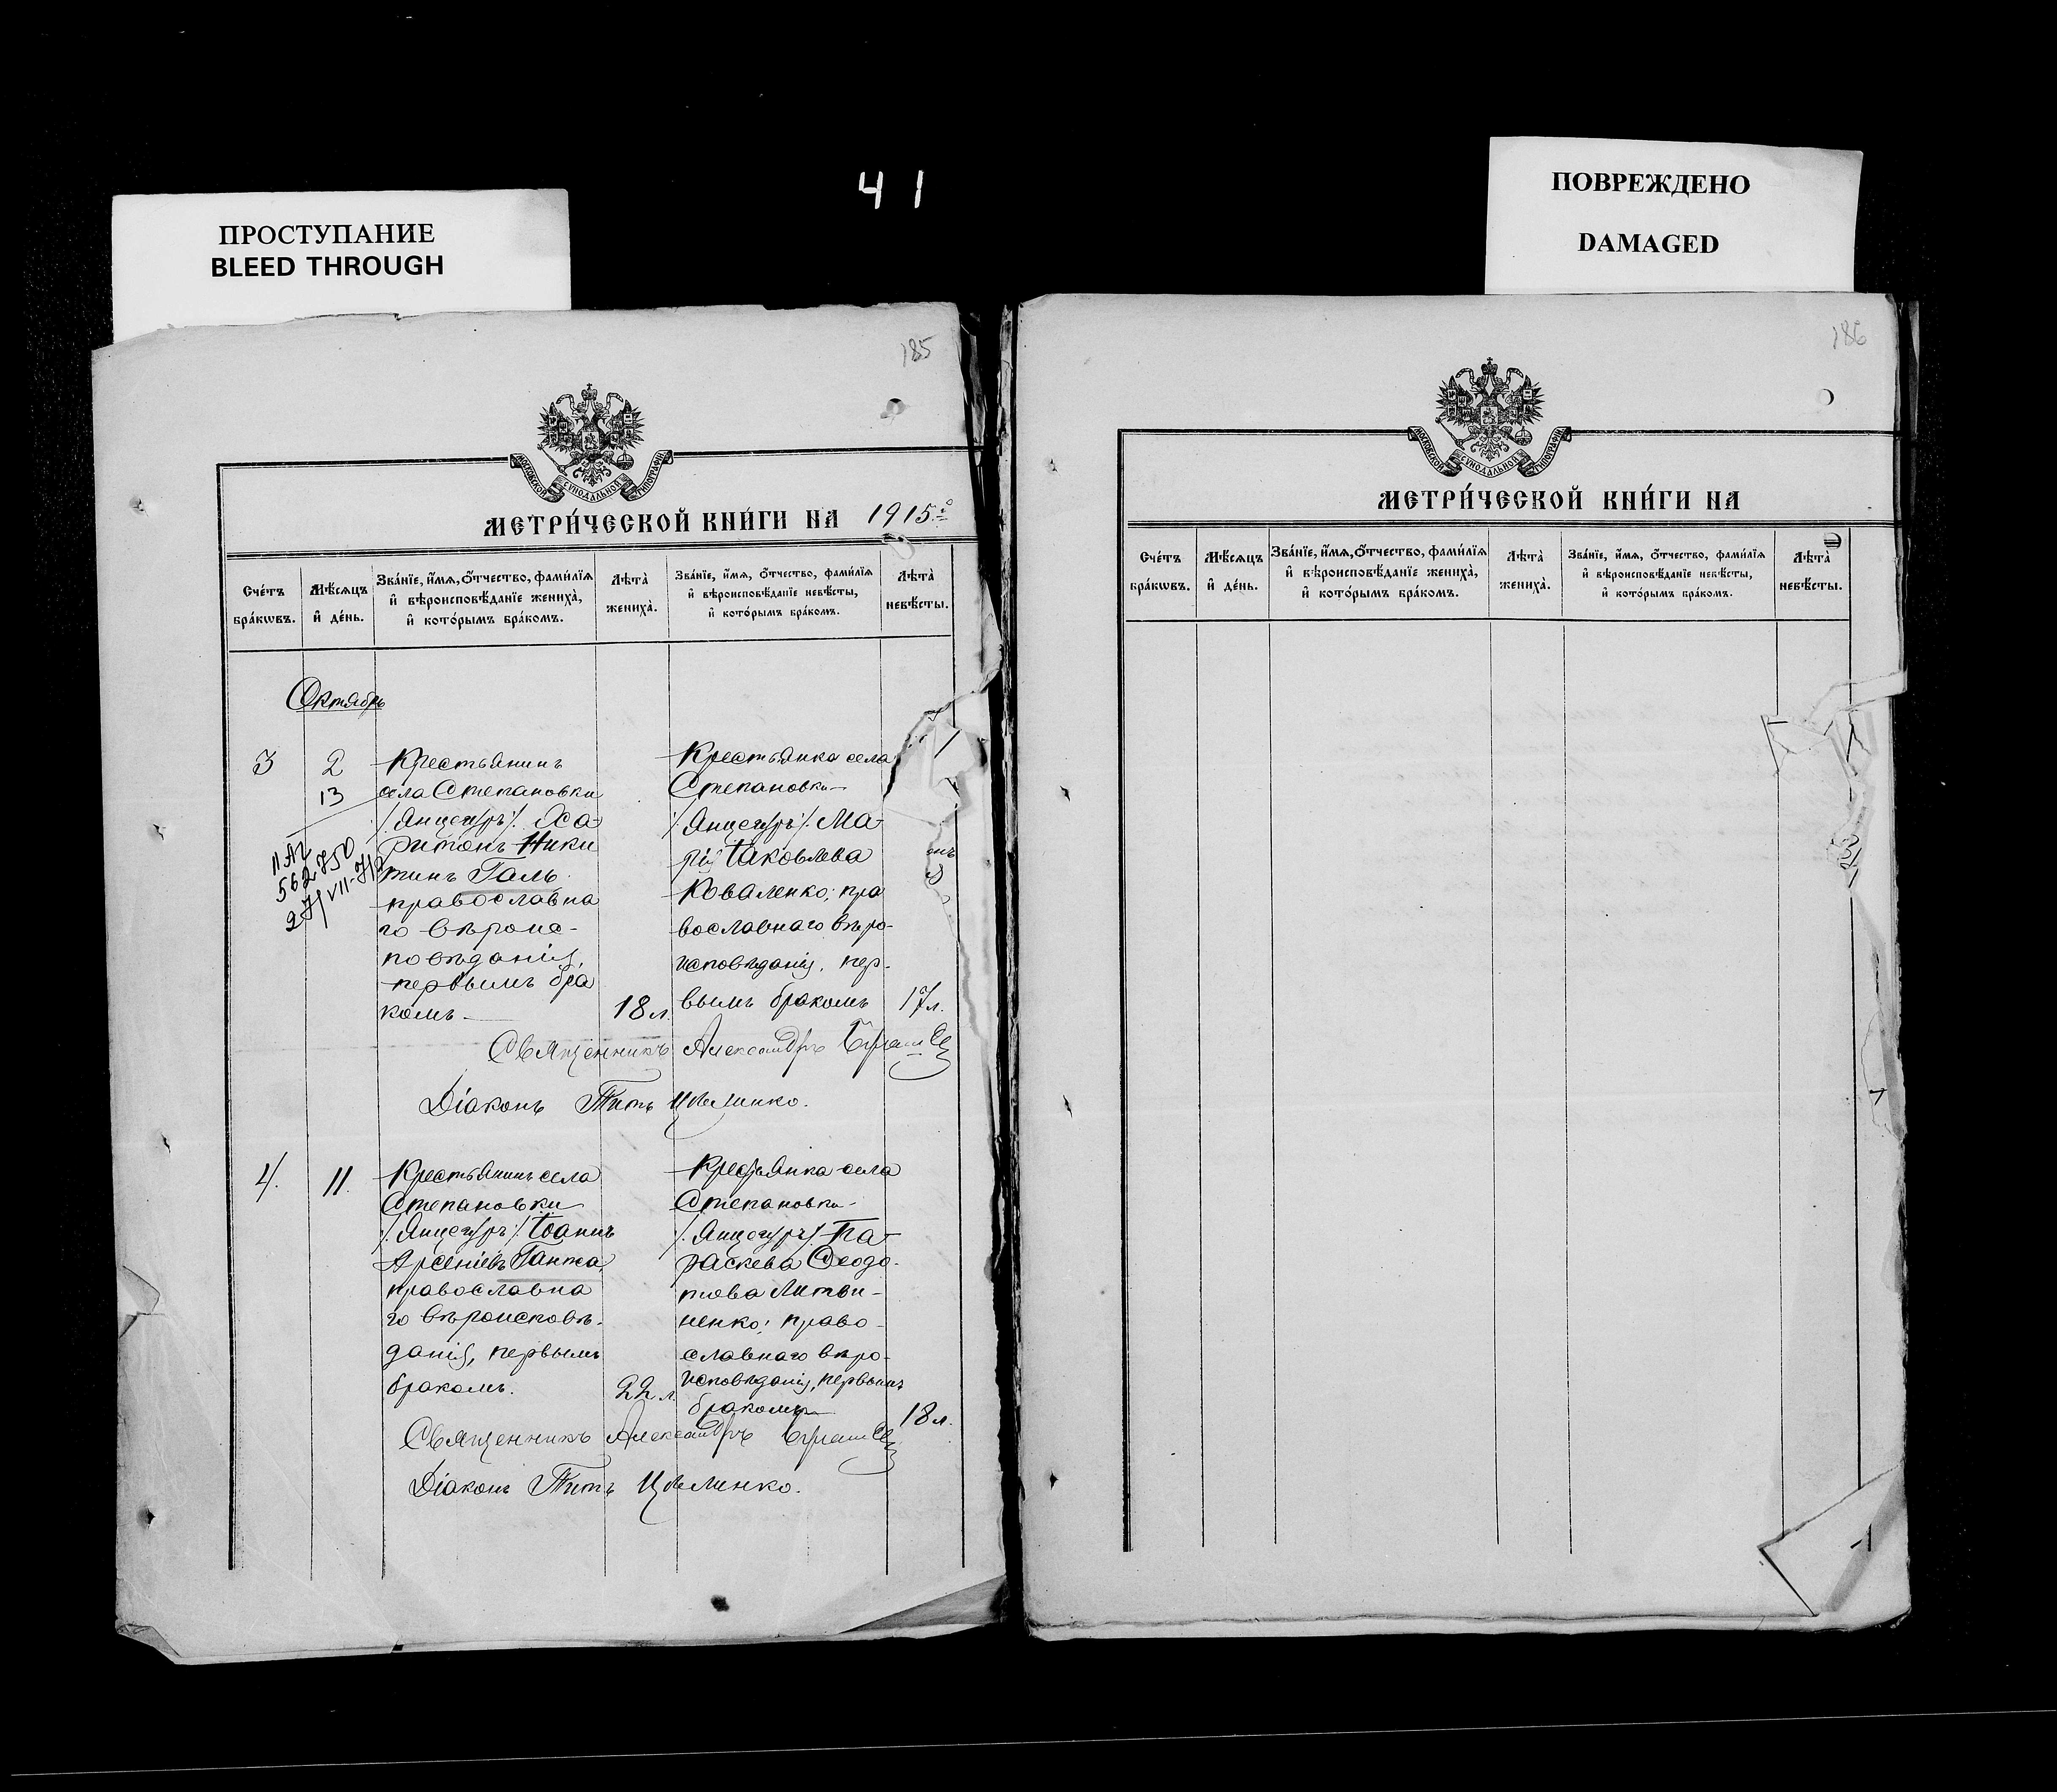 41
ПРОСТУПАНИЕ
BLEED THROUGH
ПОВРЕЖДЕНО
DAMAGED
185
МОСКОВСКОЙ СѴНОДАЛЬНОЙ ТИПОГРАФИИ
МЕТРИ́ЧЕСКОЙ КНИ́ГИ НА 1915 г.
Сче́тъ бра́кωвъ.
Мѣ́сѧцъ и҆ де́нь.
Зва́нїе, и҆́мѧ, ѻ҆́тчество, фами́лїѧ
и҆ вѣроисповѣ́данїе жениха̀,
и҆ кото́рымъ бра́комъ.
Лѣта̀ жениха̀.
Зва́нїе, и҆́мѧ, ѻ҆́тчество, фами́лїѧ
и҆ вѣроисповѣ́данїе невѣ́сты,
и҆ кото́рымъ бра́комъ.
Лѣта̀ невѣ́сты.
Октябрь
3
2
13
Крестьянинъ
села Степановки
/Янцегуръ/. Ха-
ритонъ Ники
тинъ Галь
православна
го вѣроис-
повѣданія,
первымъ бра
комъ
18 л.
Крестьянка села
Степановки
/Янцегуръ/. Ма-
рія Іаковлева
Коваленко; пра
вославнаго вѣро-
исповѣданія, пер-
вымъ бракомъ
17 л.
II АГ
562750
27/VII-
Священникъ Александръ
Діаконъ Титъ
4.
11.
Крестьянинъ села
Степановки
/.Янцегуръ/. Іоаннъ
Арсеніевъ Ганжа
православна
го вѣроисповѣ-
данія, первымъ
бракомъ.
22 л.
Крестьянка села
Степановки
/.Янцегуръ/. Па-
раскева Ѳеодо-
това Литви-
ненко; право-
славнаго вѣро-
исповѣданія, первымъ
бракомъ
18 л.
Священникъ Александръ
Діаконъ Титъ
186
МОСКОВСКОЙ СѴНОДАЛЬНОЙ ТИПОГРАФИИ
МЕТРИ́ЧЕСКОЙ КНИ́ГИ НА
Сче́тъ бра́кωвъ.
Мѣ́сѧцъ и҆ де́нь.
Зва́нїе, и҆́мѧ, ѻ҆́тчество, фами́лїѧ
и҆ вѣроисповѣ́данїе жениха̀,
и҆ кото́рымъ бра́комъ.
Лѣта̀ жениха̀.
Зва́нїе, и҆́мѧ, ѻ҆́тчество, фами́лїѧ
и҆ вѣроисповѣ́данїе невѣ́сты,
и҆ кото́рымъ бра́комъ.
Лѣта̀ невѣ́сты.